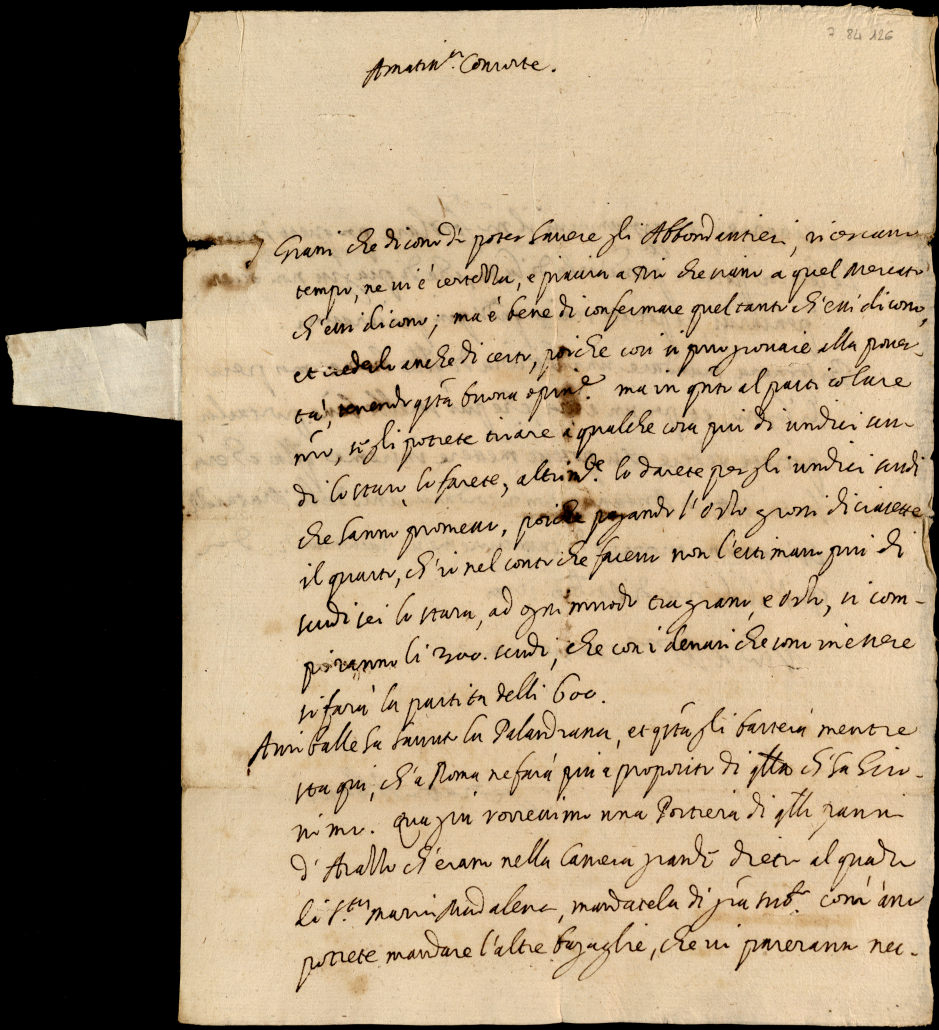 7 84 126
Amatiss.ma Consorte.
I Grani che dicono di poter havere gli Abbondantieri, ricercano
tempo, ne vi è certezza, e piaccia a Dio che siano a quel mercato
ch'essi dicono; ma è bene di confermare quel tanto ch'essi dicono,
et crederlo anche di certo, poiche così si può giovare alla pover-
tà, tenendo q̃sta buona opin.e ma in q̃nto al particolare
nr̃o, se gli potrete tirare a qualche cosa più di undici scu-
di lo staro lo farete, altrim.te lo darete per gli undici scudi
che hanno promesso, poiche pagando l'Orzo grossi diciasette
il quarto, ch'io nel conto che facessi non l'estimavo più di
scudi sei lo staro, ad ogni modo tra grano, e Orzo, si com-
piranno li 300. scudi, che con i denari che sono in essere
si farà la partita delli 600.
Anniballe ha havuto la Palandrana, et q̃sta gli basterà mentre
sta qui, ch'a Roma ne farà più a proposito di q̃lla ch'ha Giro-
nimo. Qua giù vorressimo una Portiera di q̃lli panni
d'Arazzo ch'erano nella Camera grande dietro al quadro
di S.ta Maria Madalena, mandatela di già sub.o com'anco
potrete mandare l'altre bagaglie, che vi pareranno nec-